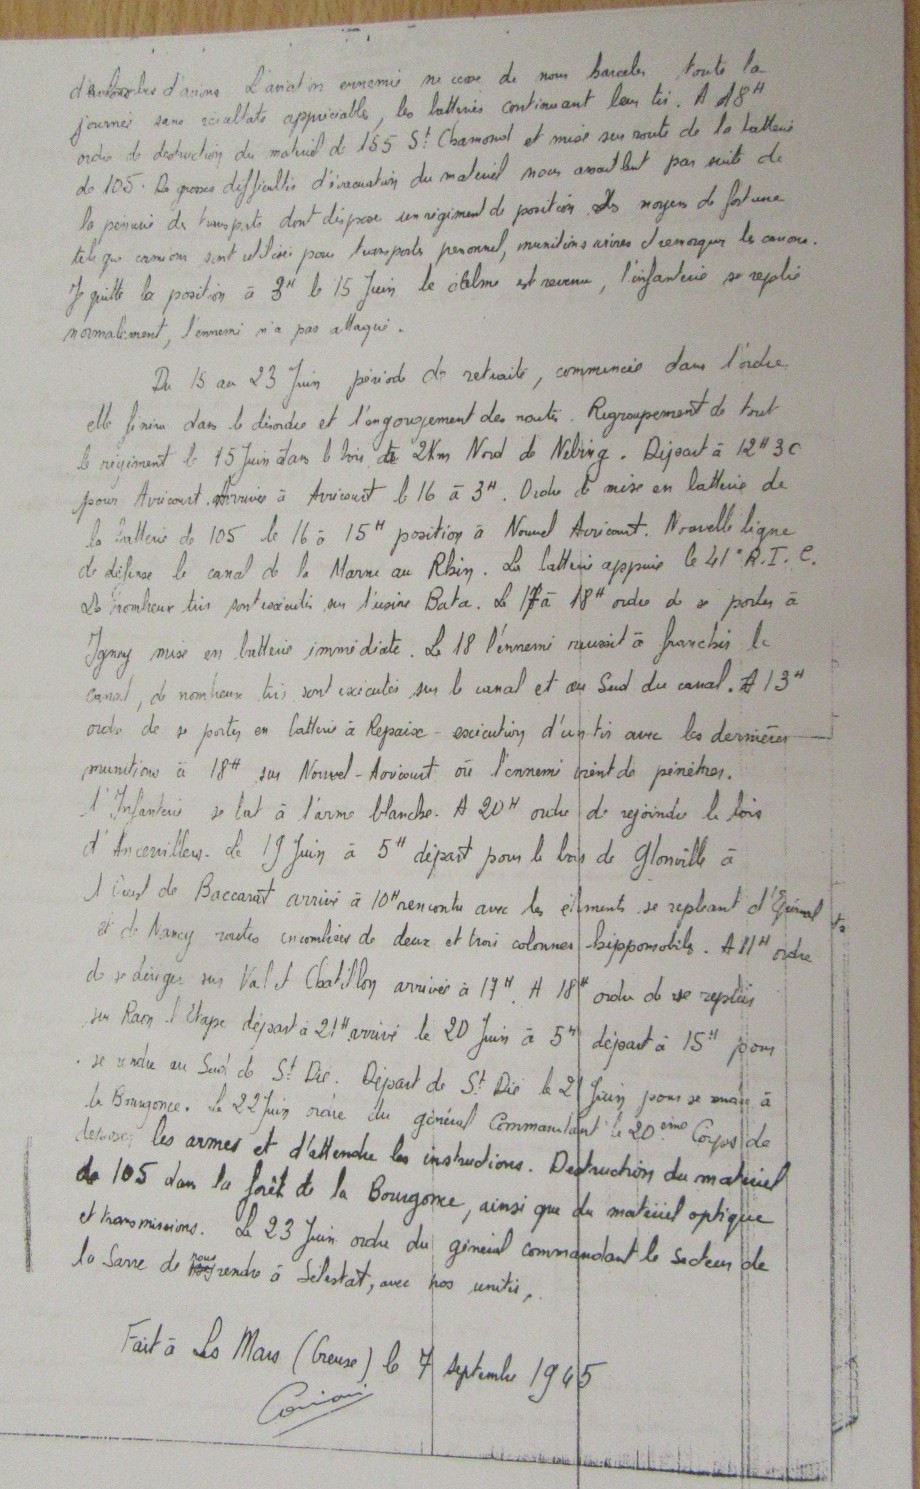 d'avions L'aviation ennemie ne cesse de nous harceler toute la
journée sans résultats appréciables, les batteries continuant leur tir. A 18H
ordre de destruction du matériel de 155 St Chamond et mise sur route de la batterie
de 105. De grosses difficultés d'évacuation du matériel nous assaillent par suite de
la pénurie de transports dont dispose un régiment de position. Des moyens de fortune
tels que camions sont utilisés pour transports personnel, munitions vivres et remorquer les canons.
Je quitte la position à 3H le 15 Juin le calme est revenu, l'infanterie se replie
normalement, l'ennemi n'a pas attaqué.
Du 15 au 23 Juin période de retraite, commencée dans l'ordre
elle finira dans le désordre et l'engorgement des routes. Regroupement de tout
le régiment le 15 Juin dans le bois de 2Km Nord de Nebing. Départ à 12H30
pour Avricourt. Arrivée à Avricourt le 16 à 3H. Ordre de mise en batterie de
la batterie de 105 le 16 à 15H position à Nouvel Avricourt. Nouvelle ligne
de défense le canal de la Marne au Rhin. La batterie appuie le 41e R.I.C.
De nombreux tirs sont exécutés sur l'usine Bata. Le 17 à 18H ordre de se porter à
Igney mise en batterie immédiate. Le 18 l'ennemi réussit à franchir le
canal, de nombreux tirs sont exécutés sur le canal et au Sud du canal. A 13H
ordre de se porter en batterie à Repaix - exécution d'un tir avec les dernières
munitions à 18H sur Nouvel-Avricourt où l'ennemi vient de pénétrer.
l'Infanterie se bat à l'arme blanche. A 20H ordre de rejoindre le bois
d'Ancervillers. Le 19 Juin à 5H départ pour le bois de Glonville à
l'Ouest de Baccarat arrivé à 10H rencontre avec les éléments se repliant d'Epinal
et de Nancy routes encombrées de deux et trois colonnes hippomobiles. A 11H ordre
de se diriger sur Val et Chatillon arrivée à 17H. A 18H ordre de se replier
sur Raon l'Etape départ à 21H arrivé le 20 Juin à 5H départ à 15H pour
se rendre au Sud de St Dié. Départ de St Dié le 21 Juin pour se rendre à
la Bourgonce. Le 22 Juin ordre du général Commandant le 20ème Corps de
déposer les armes et d'attendre les instructions. Destruction du matériel
de 105 dans la forêt de la Bourgonce, ainsi que du matériel optique
et transmissions. Le 23 Juin ordre du général commandant le secteur de
la Sarre de nous rendre à Sélestat, avec nos unités.
Fait à Les Mars (Creuse) le 7 septembre 1945